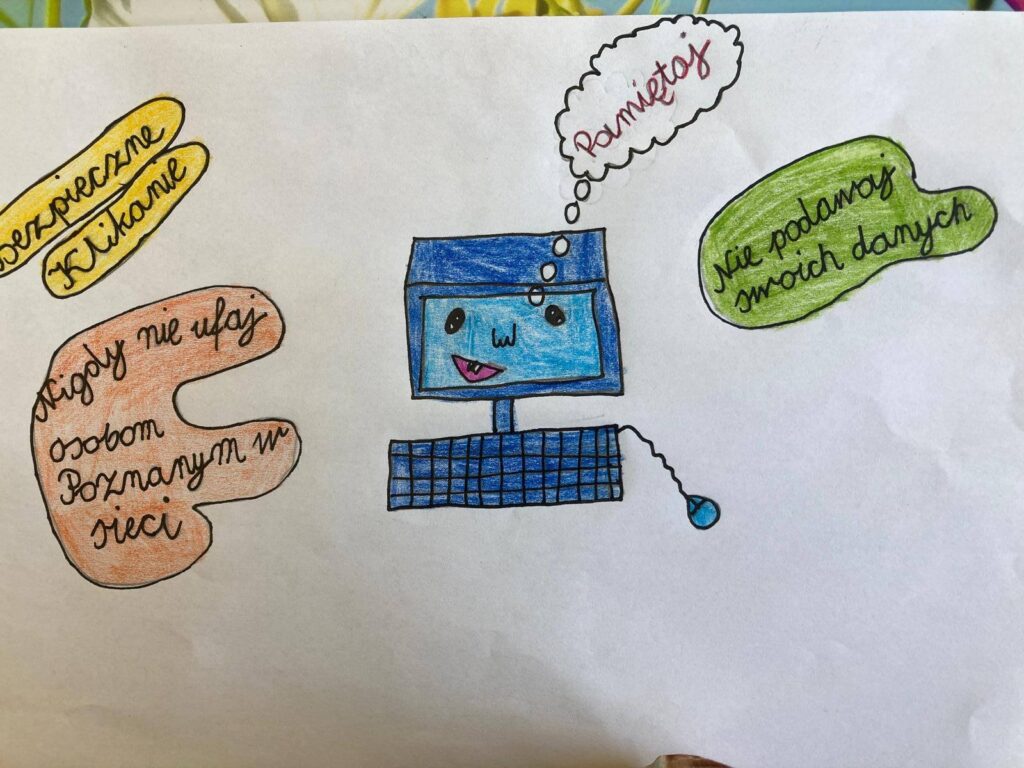 Bezpieczne
Klikanie
Pamiętaj
Nie podawaj
swoich danych
Nigdy nie ufaj
osobom
Poznanym w
sieci